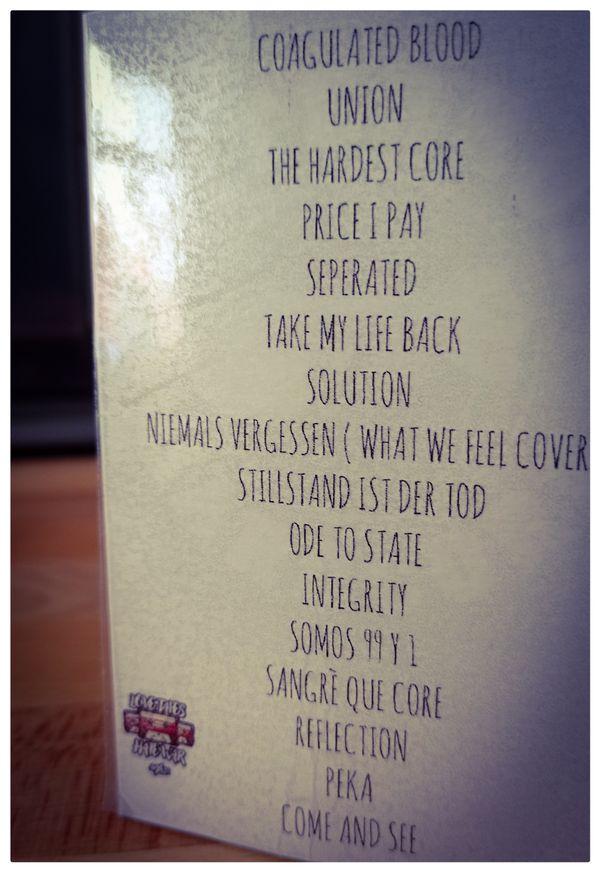 COAGULATED BLOOD
UNION
THE HARDEST CORE
PRICE I PAY
SEPERATED
TAKE MY LIFE BACK
SOLUTION
NIEMALS VERGESSEN ( WHAT WE FEEL COVER
STILLSTAND IST DER TOD
ODE TO STATE
INTEGRITY
SOMOS 99 Y 1
SANGRÈ QUE CORE
REFLECTION
PEKA
COME AND SEE